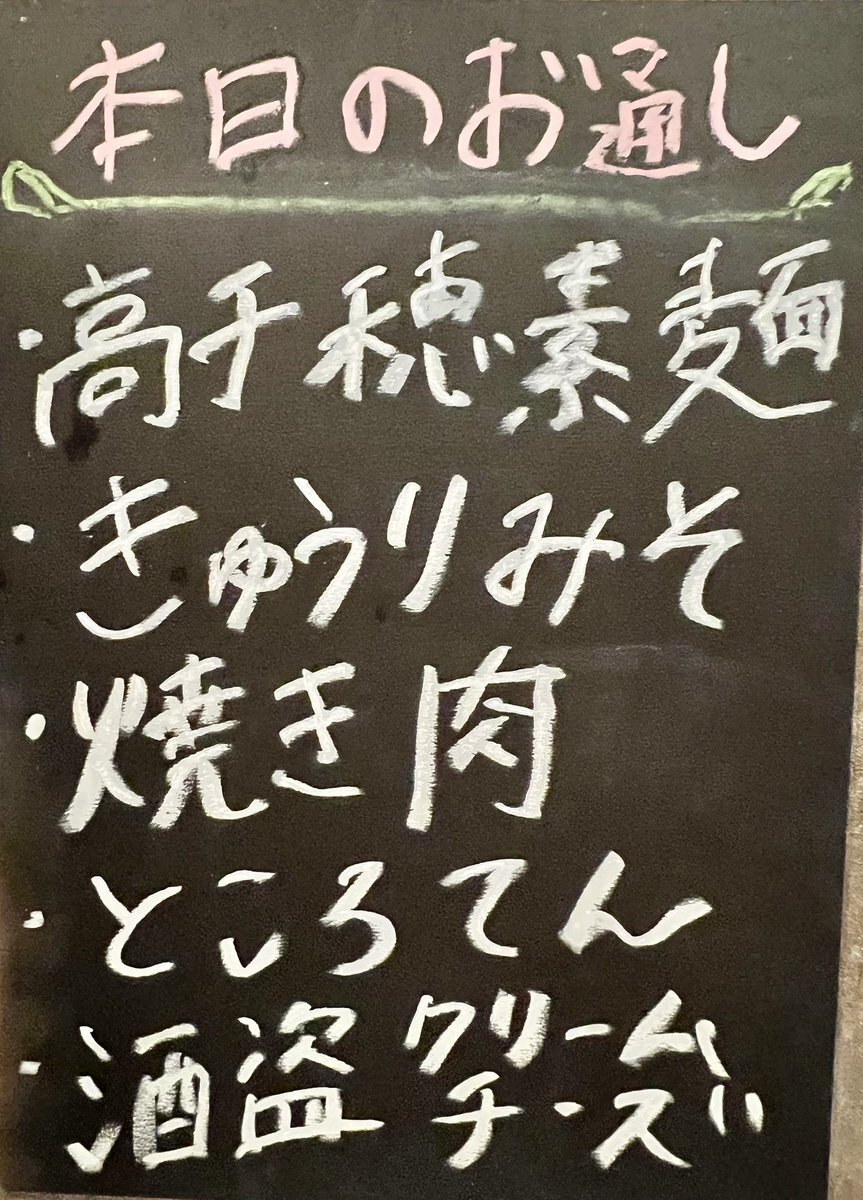 本日のお通し
・高千穂素麺
・きゅうりみそ
・焼き肉
・ところてん
・酒盗クリーム
チーズ